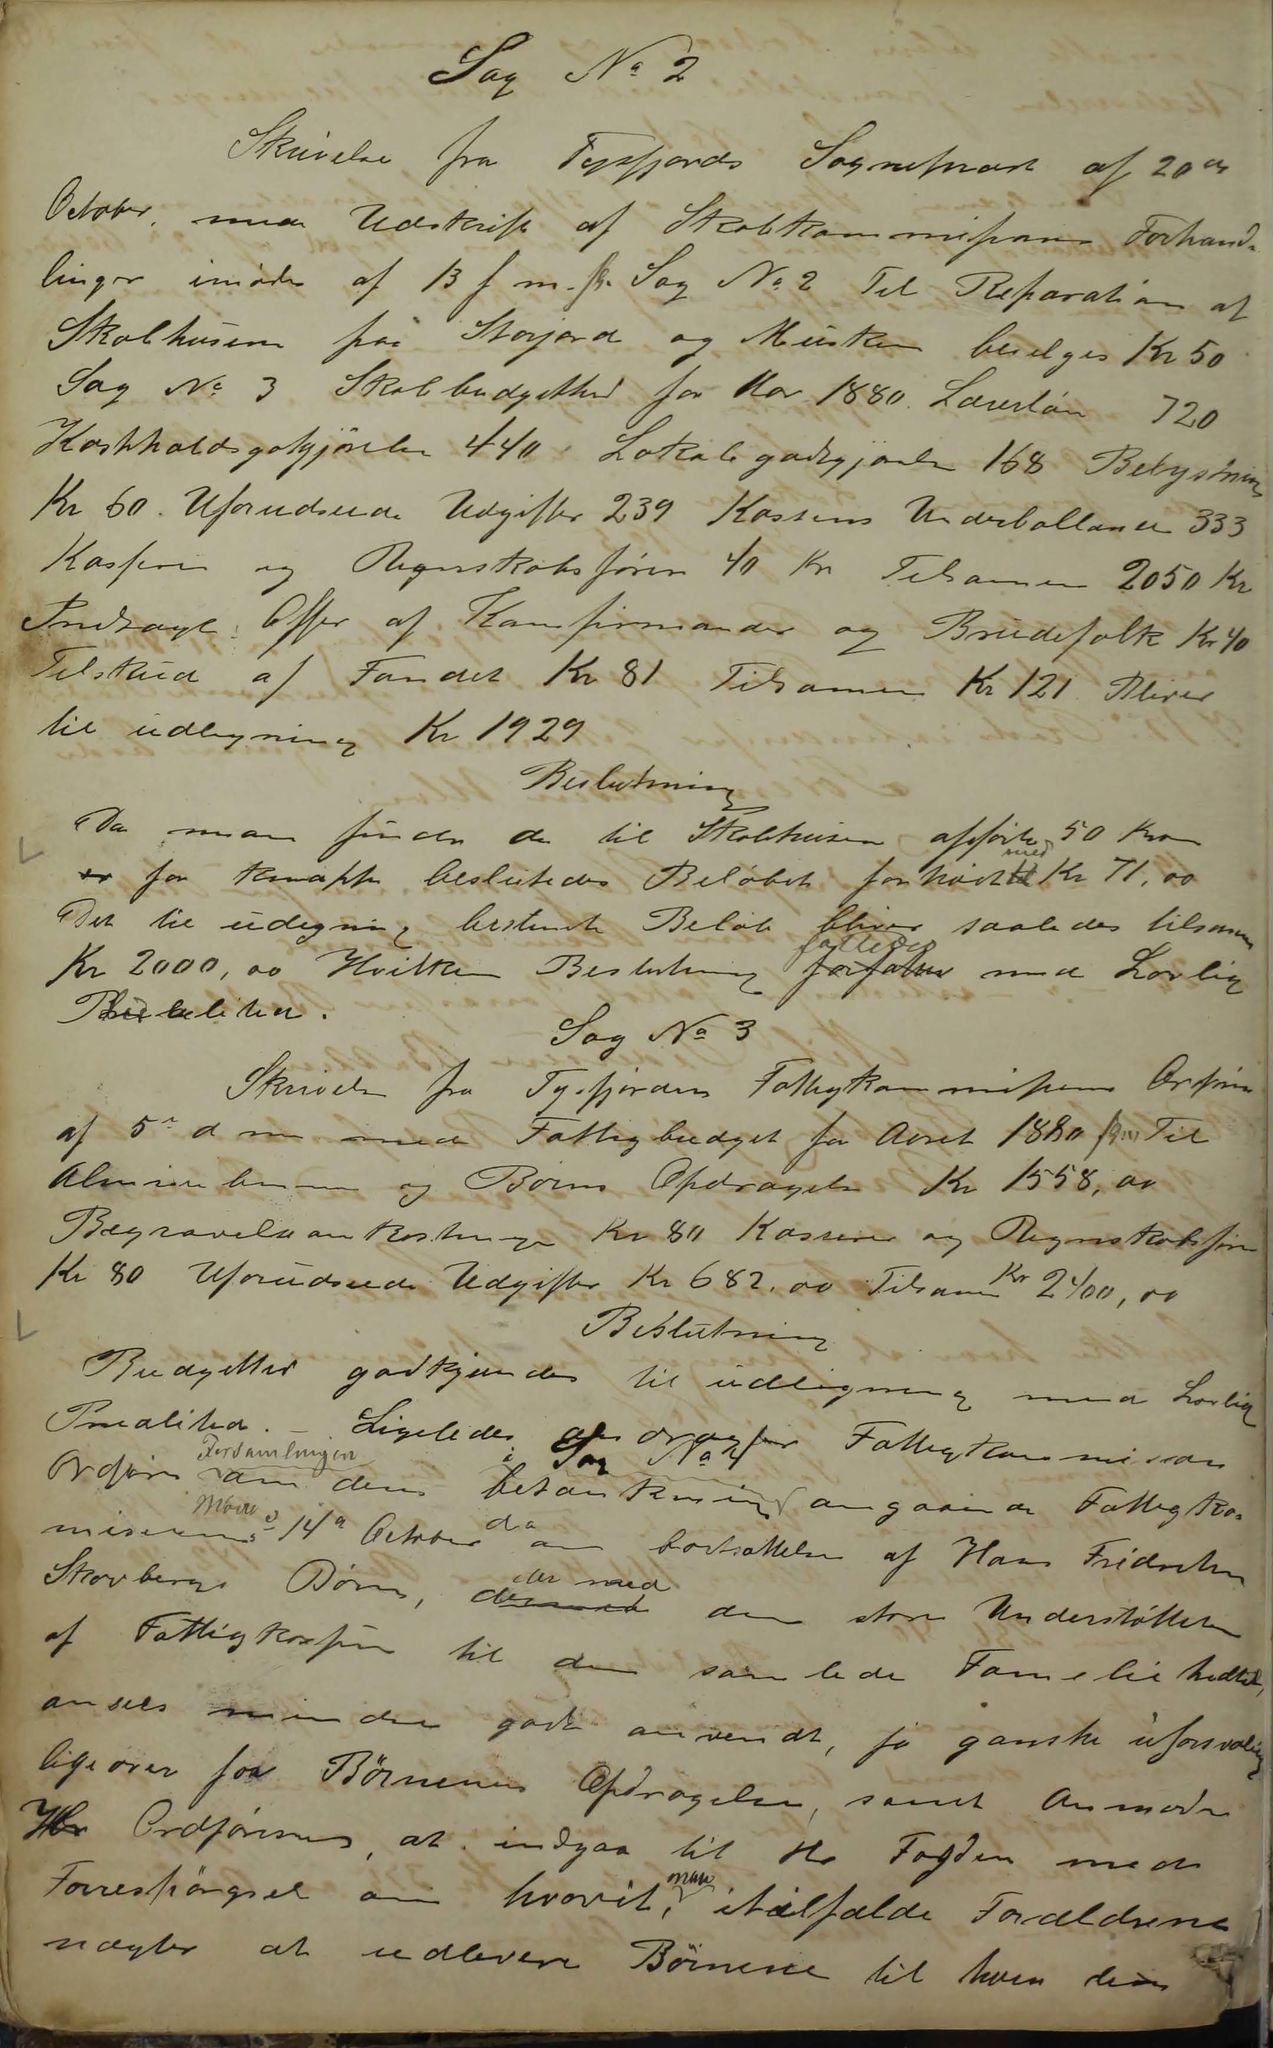 Sag No 2
Skrivelse fra Tysfjords Sogneprest af 20de
October, med Udskrift af Skolekommissionens Forhand-
linger i møde af 13 f m. Sag No 2 Til Reparation af
Skolehusene paa Storjord og Musken bevilges Kr 50
Sag No 3 Skolebudgettet for Aar 1880. Lærerløn 720
Kostholdsgodtgjörelse 440 Lokalegodtgjörelse 168 Belysning
Kr 60. Uforudseede Udgifter 239 Kassens Underballance 333
Kasserer og Regnskabsfører 40 Kr Tilsamen 2050 Kr
Indtægt: Offer af Konfirmander og Brudefolk Kr 40
Tilskud af Fondet Kr 81 Tilsamen Kr 121 Bliver
til udligning Kr 1929
Beslutning
Da man finder de til Skolehusene opførte 50 Kroner
er for knapt besluttedes Beløbet forhöiet med Kr 71,00
Det til udligning bestemte Beløb bliver saaledes tilsamen
Kr 2000,00 Hvilken Beslutning fattedes med Lovlig
Pluralitet.
Sag No 3
Skrivelse fra Tysfjordens Fattigkommissions Ordfører
af 5te d m med Fattigbudget for Aaret 1880 Til
Almisselemmer og Börns Opdragelse Kr 1558,00
Begravelsesomkostninger Kr 80 Kasserer og Regnskabsfører
Kr 80 Uforudseede Udgifter Kr 682,00 Tilsamen Kr 2400,00
Beslutning
Budgettet godkjendes til udligning med Lovlig
Pluralitet. - Ligeledes Fattigkommissions
Sag No 4
Ordfører Forsamlingen om dens betænkning angaaende Fattigko-
missionens Møde 14de October da om bortsættelse af Hans Fridrichsen
Skovbergs Börn, der med den store Understöttelse
af Fattigkassen til den samlede Familie
ansees mindre godt anvendt, ja ganske uforsvarlig
ligeover for Börnenes Opdragelse, samt Anmoder
Hr Ordförerens, at indgaa til Hr Fogden med
Forrespörgsel om hvorvit, man i tilfælde Forældrene
nægter at udlevere Börnene til hvem den